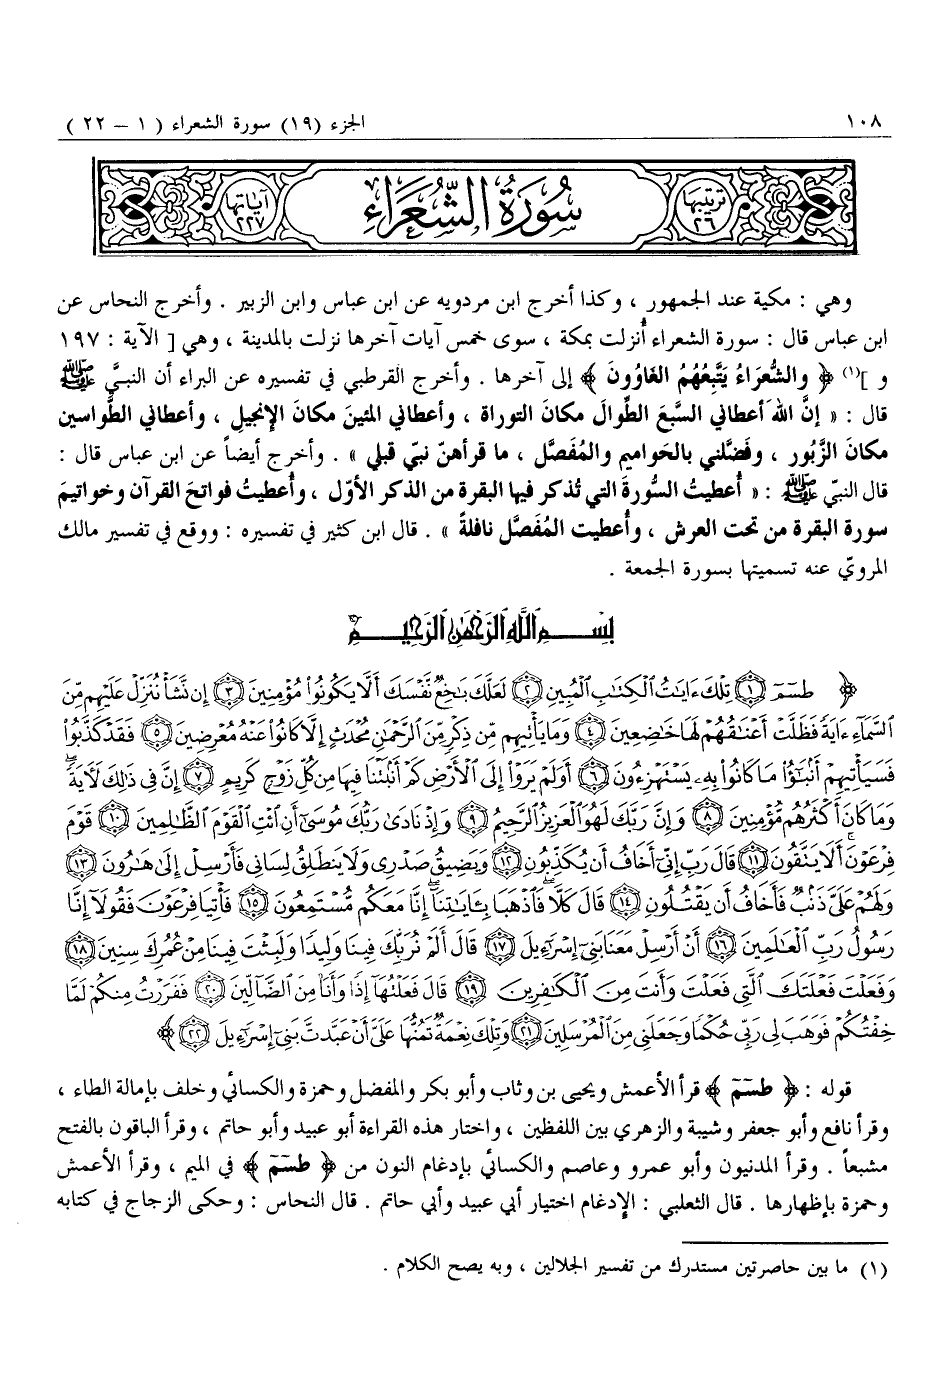 ١٠٨ الجزء (١٩) سورة الشعراء ( ١ – ٢٢ )
ترتيبها ٢٦ سُورَةُ الشُّعَرَاءِ آياتها ٢٢٧
وهي : مكية عند الجمهور ، وكذا أخرج ابن مردويه عن ابن عباس وابن الزبير . وأخرج النحاس عن
ابن عباس قال : سورة الشعراء أُنزلت بمكة ، سوى خمس آيات آخرها نزلت بالمدينة ، وهي [ الآية : ١٩٧
و ](١) ﴿ والشُّعَرَاءُ يَتَّبِعُهُمُ الغَاوُونَ ﴾ إلى آخرها . وأخرج القرطبي في تفسيره عن البراء أن النبيَّ ﷺ
قال : « إنَّ الله أعطاني السَّبعَ الطِّوالَ مكانَ التوراة ، وأعطاني المئينَ مكانَ الإنجيلِ ، وأعطاني الطَّواسين
مكانَ الزَّبُور ، وفَضَّلني بالحَواميم والمُفَصَّل ، ما قرأهنّ نبّي قبلي » . وأخرج أيضاً عن ابن عباس قال :
قال النبّي ﷺ : « أُعطيتُ السُّورةَ التي تُذكر فيها البقرة من الذكر الأوّل ، وأُعطيتُ فواتحَ القرآن وخواتيمَ
سورة البقرة من تحت العرش ، وأُعطيت المُفَصَّل نافلةً » . قال ابن كثير في تفسيره : ووقع في تفسير مالك
المرويّ عنه تسميتها بسورة الجمعة .
بِسْمِ اللَّهِ الرَّحْمَٰنِ الرَّحِيمِ
﴿ طسٓمٓ ١ تِلْكَ ءَايَٰتُ ٱلْكِتَٰبِ ٱلْمُبِينِ ٢ لَعَلَّكَ بَٰخِعٌ نَّفْسَكَ أَلَّا يَكُونُوا۟ مُؤْمِنِينَ ٣ إِن نَّشَأْ نُنَزِّلْ عَلَيْهِم مِّنَ
ٱلسَّمَآءِ ءَايَةً فَظَلَّتْ أَعْنَٰقُهُمْ لَهَا خَٰضِعِينَ ٤ وَمَا يَأْتِيهِم مِّن ذِكْرٍ مِّنَ ٱلرَّحْمَٰنِ مُحْدَثٍ إِلَّا كَانُوا۟ عَنْهُ مُعْرِضِينَ ٥ فَقَدْ كَذَّبُوا۟
فَسَيَأْتِيهِمْ أَنۢبَٰٓؤُا۟ مَا كَانُوا۟ بِهِۦ يَسْتَهْزِءُونَ ٦ أَوَلَمْ يَرَوْا۟ إِلَى ٱلْأَرْضِ كَمْ أَنۢبَتْنَا فِيهَا مِن كُلِّ زَوْجٍ كَرِيمٍ ٧ إِنَّ فِى ذَٰلِكَ لَءَايَةً ۖ
وَمَا كَانَ أَكْثَرُهُم مُّؤْمِنِينَ ٨ وَإِنَّ رَبَّكَ لَهُوَ ٱلْعَزِيزُ ٱلرَّحِيمُ ٩ وَإِذْ نَادَىٰ رَبُّكَ مُوسَىٰٓ أَنِ ٱئْتِ ٱلْقَوْمَ ٱلظَّٰلِمِينَ ١٠ قَوْمَ
فِرْعَوْنَ ۚ أَلَا يَتَّقُونَ ١١ قَالَ رَبِّ إِنِّىٓ أَخَافُ أَن يُكَذِّبُونِ ١٢ وَيَضِيقُ صَدْرِى وَلَا يَنطَلِقُ لِسَانِى فَأَرْسِلْ إِلَىٰ هَٰرُونَ ١٣
وَلَهُمْ عَلَىَّ ذَنۢبٌ فَأَخَافُ أَن يَقْتُلُونِ ١٤ قَالَ كَلَّا ۖ فَٱذْهَبَا بِـَٔايَٰتِنَآ ۖ إِنَّا مَعَكُم مُّسْتَمِعُونَ ١٥ فَأْتِيَا فِرْعَوْنَ فَقُولَآ إِنَّا
رَسُولُ رَبِّ ٱلْعَٰلَمِينَ ١٦ أَنْ أَرْسِلْ مَعَنَا بَنِىٓ إِسْرَٰٓءِيلَ ١٧ قَالَ أَلَمْ نُرَبِّكَ فِينَا وَلِيدًا وَلَبِثْتَ فِينَا مِنْ عُمُرِكَ سِنِينَ ١٨
وَفَعَلْتَ فَعْلَتَكَ ٱلَّتِى فَعَلْتَ وَأَنتَ مِنَ ٱلْكَٰفِرِينَ ١٩ قَالَ فَعَلْتُهَآ إِذًا وَأَنَا۠ مِنَ ٱلضَّآلِّينَ ٢٠ فَفَرَرْتُ مِنكُمْ لَمَّا
خِفْتُكُمْ فَوَهَبَ لِى رَبِّى حُكْمًا وَجَعَلَنِى مِنَ ٱلْمُرْسَلِينَ ٢١ وَتِلْكَ نِعْمَةٌ تَمُنُّهَا عَلَىَّ أَنْ عَبَّدتَّ بَنِىٓ إِسْرَٰٓءِيلَ ٢٢ ﴾
قوله : ﴿ طسٓمٓ ﴾ قرأ الأعمش ويحيى بن وثاب وأبو بكر والمفضل وحمزة والكسائي وخلف بإمالة الطاء ،
وقرأ نافع وأبو جعفر وشيبة والزهري بين اللفظين ، واختار هذه القراءة أبو عبيد وأبو حاتم ، وقرأ الباقون بالفتح
مشبعاً . وقرأ المدنيون وأبو عمرو وعاصم والكسائي بإدغام النون من ﴿ طسٓمٓ ﴾ في الميم ، وقرأ الأعمش
وحمزة بإظهارها . قال الثعلبي : الإدغام اختيار أبي عبيد وأبي حاتم . قال النحاس : وحكى الزجاج في كتابه
(١) ما بين حاصرتين مستدرك من تفسير الجلالين ، وبه يصح الكلام .